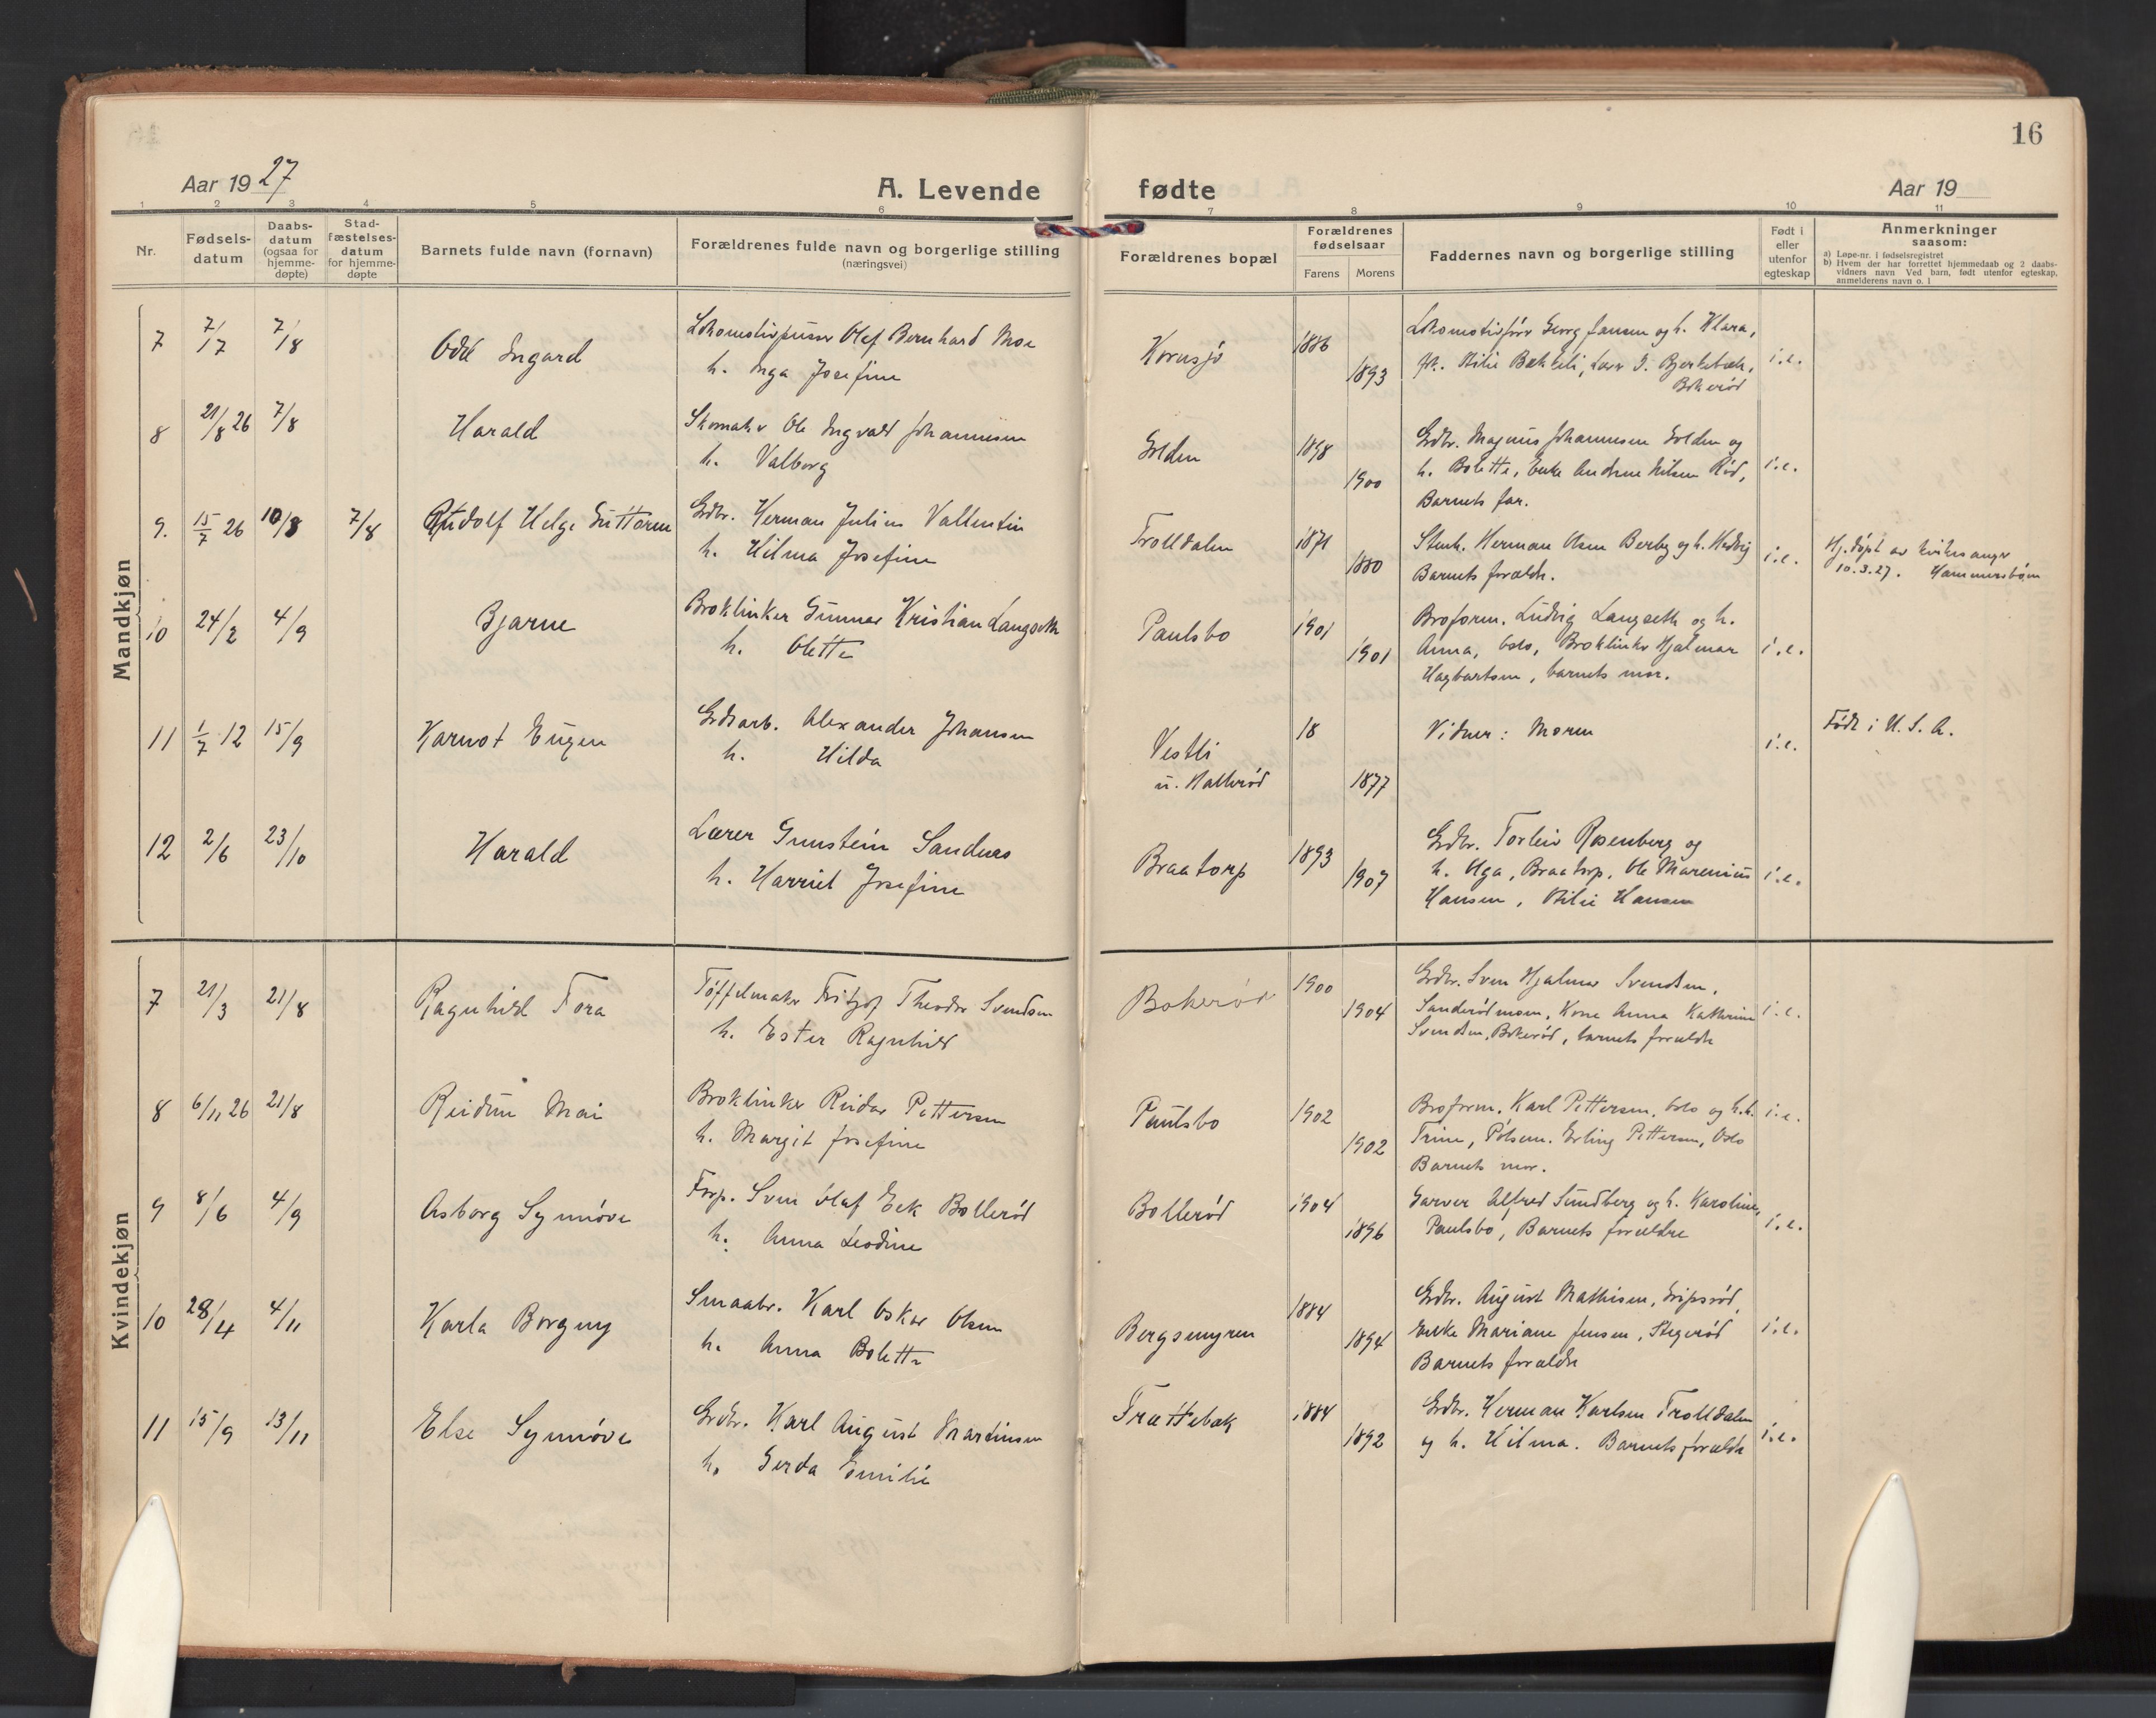 16
Aar 19 27
A. Levende
fødte
Aar 19
1 2 3 4 5 6 7 8 9 10 11
Nr.
Fødsels-
datum
Daabs-
datum
(ogsaa for
hjemme-
døpte)
Stad-
fæstelses-
datum
for hjemme-
døpte
Barnets fulde navn (fornavn)
Forældrenes fulde navn og borgerlige stilling
(næringsvei)
Forældrenes bopæl
Forældrenes
fødselsaar
Farens Morens
Faddernes navn og borgerlige stilling
Født i
eller
utenfor
egteskap
Anmerkninger
saasom:
a) Løpe-nr. i fødselsregistret
b) Hvem der har forrettet hjemmedaab og 2 daabs-
vidners navn Ved barn, født utenfor egteskap,
anmelderens navn o. l
Mandkjøn
7 7/7 7/8 Odd Ingard Lokomotivpusser Olaf Bernhard Moe
h. Inga Josefine
Kornsjø 1886 1893
Lokomotivfører Georg Jansen og h. Klara,
Bokerød
i.e.
8 21/8 26 7/8 Harald Skomaker Ole Ingvald Johannesen
h. Valborg
1898 1900
Grdbr. Magnus Johannesen og
h. Bolette, Enke Andrine Nilsen Rød,
Barnets far.
i.e.
9. 15/7 26 10/3 7/8 Rudolf Helge Guttorm Grdbr. Herman Julius Vallentin
h. Hilma Josefine
Trolldalen 1871 1880
Stenh. Herman Olsen Berby og h. Hedvig
Barnets forældre.
i.e.
Hj. døpt av
10.3.27. Hammersbøen
10 24/2 4/9 Bjarne Broklinker Gunnar Kristian Langseth
h. Olette
Paulsbo 1901 1901
Broform. Ludvig Langseth og h.
Anna, Oslo, Broklinker Hjalmar
Hagbartsen, barnets mor.
i.e.
11 1/7 12 15/9 Karnot Eugen Grdsarb. Alexander Johansen
h. Hilda
Vestli
u. Hallerød
18 1877
Vidner: Moren
i.e.
Født i U.S.A.
12 2/6 23/10 Harald Lærer Gunstein Sandnes
h. Harriet Josefine
Braatorp 1893 1907
Grdbr. Torleiv Rosenberg og
h. Olga, Braatorp, Ole Marenius
Hansen, Otilie Hansen
i.e.
Kvindekjøn
7 21/3 21/8 Ragnhild Tora Tøffelmaker Fritjof Theodor Svendsen
h. Ester Ragnhild
Bokerød 1900 1904
Grdbr. Sven Hjalmar Svendsen,
Sanderødmoen, Kone Anna Kathrine
Svendsen, Bokerød, barnets forældre
i.e.
8 6/11 26 21/8 Reidun Mai Broklinker Reidar Pettersen
h. Margit Josefine
Paulsbo 1902 1902
Broform. Karl Pettersen, Oslo og h.h.
Trine, Pølsem. Erling Pettersen, Oslo
Barnets mor.
i.e.
9 8/6 4/9 Asborg Synnøve Forp. Sven Olaf Eek Bollerød
h. Anna Leodine
Bollerød 1904 1896
Garver Alfred Sundberg og h. Karoline,
Paulsbo, Barnets forældre
i.e.
10 28/4 4/11 Karla Borgny Smaabr. Karl Oskar Olsen
h. Anna Bolette
Bergsmyren 1884 1894
Grdbr. August Mathisen, Gripsrød,
Enke Mariane Jensen, Stegerød
Barnets forældre
i.e.
11 15/9 13/11 Else Synnøve Grdbr. Karl August Martinsen
h. Gerda Emilie
Trættebæk 1884 1892
Grdbr. Herman Karlsen Trolldalen
og h. Hilma. Barnets forældre
i.e.